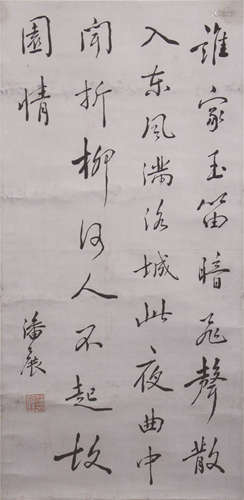 誰家玉笛暗飛聲散
入東風滿洛城此夜曲中
聞折柳何人不起故
園情